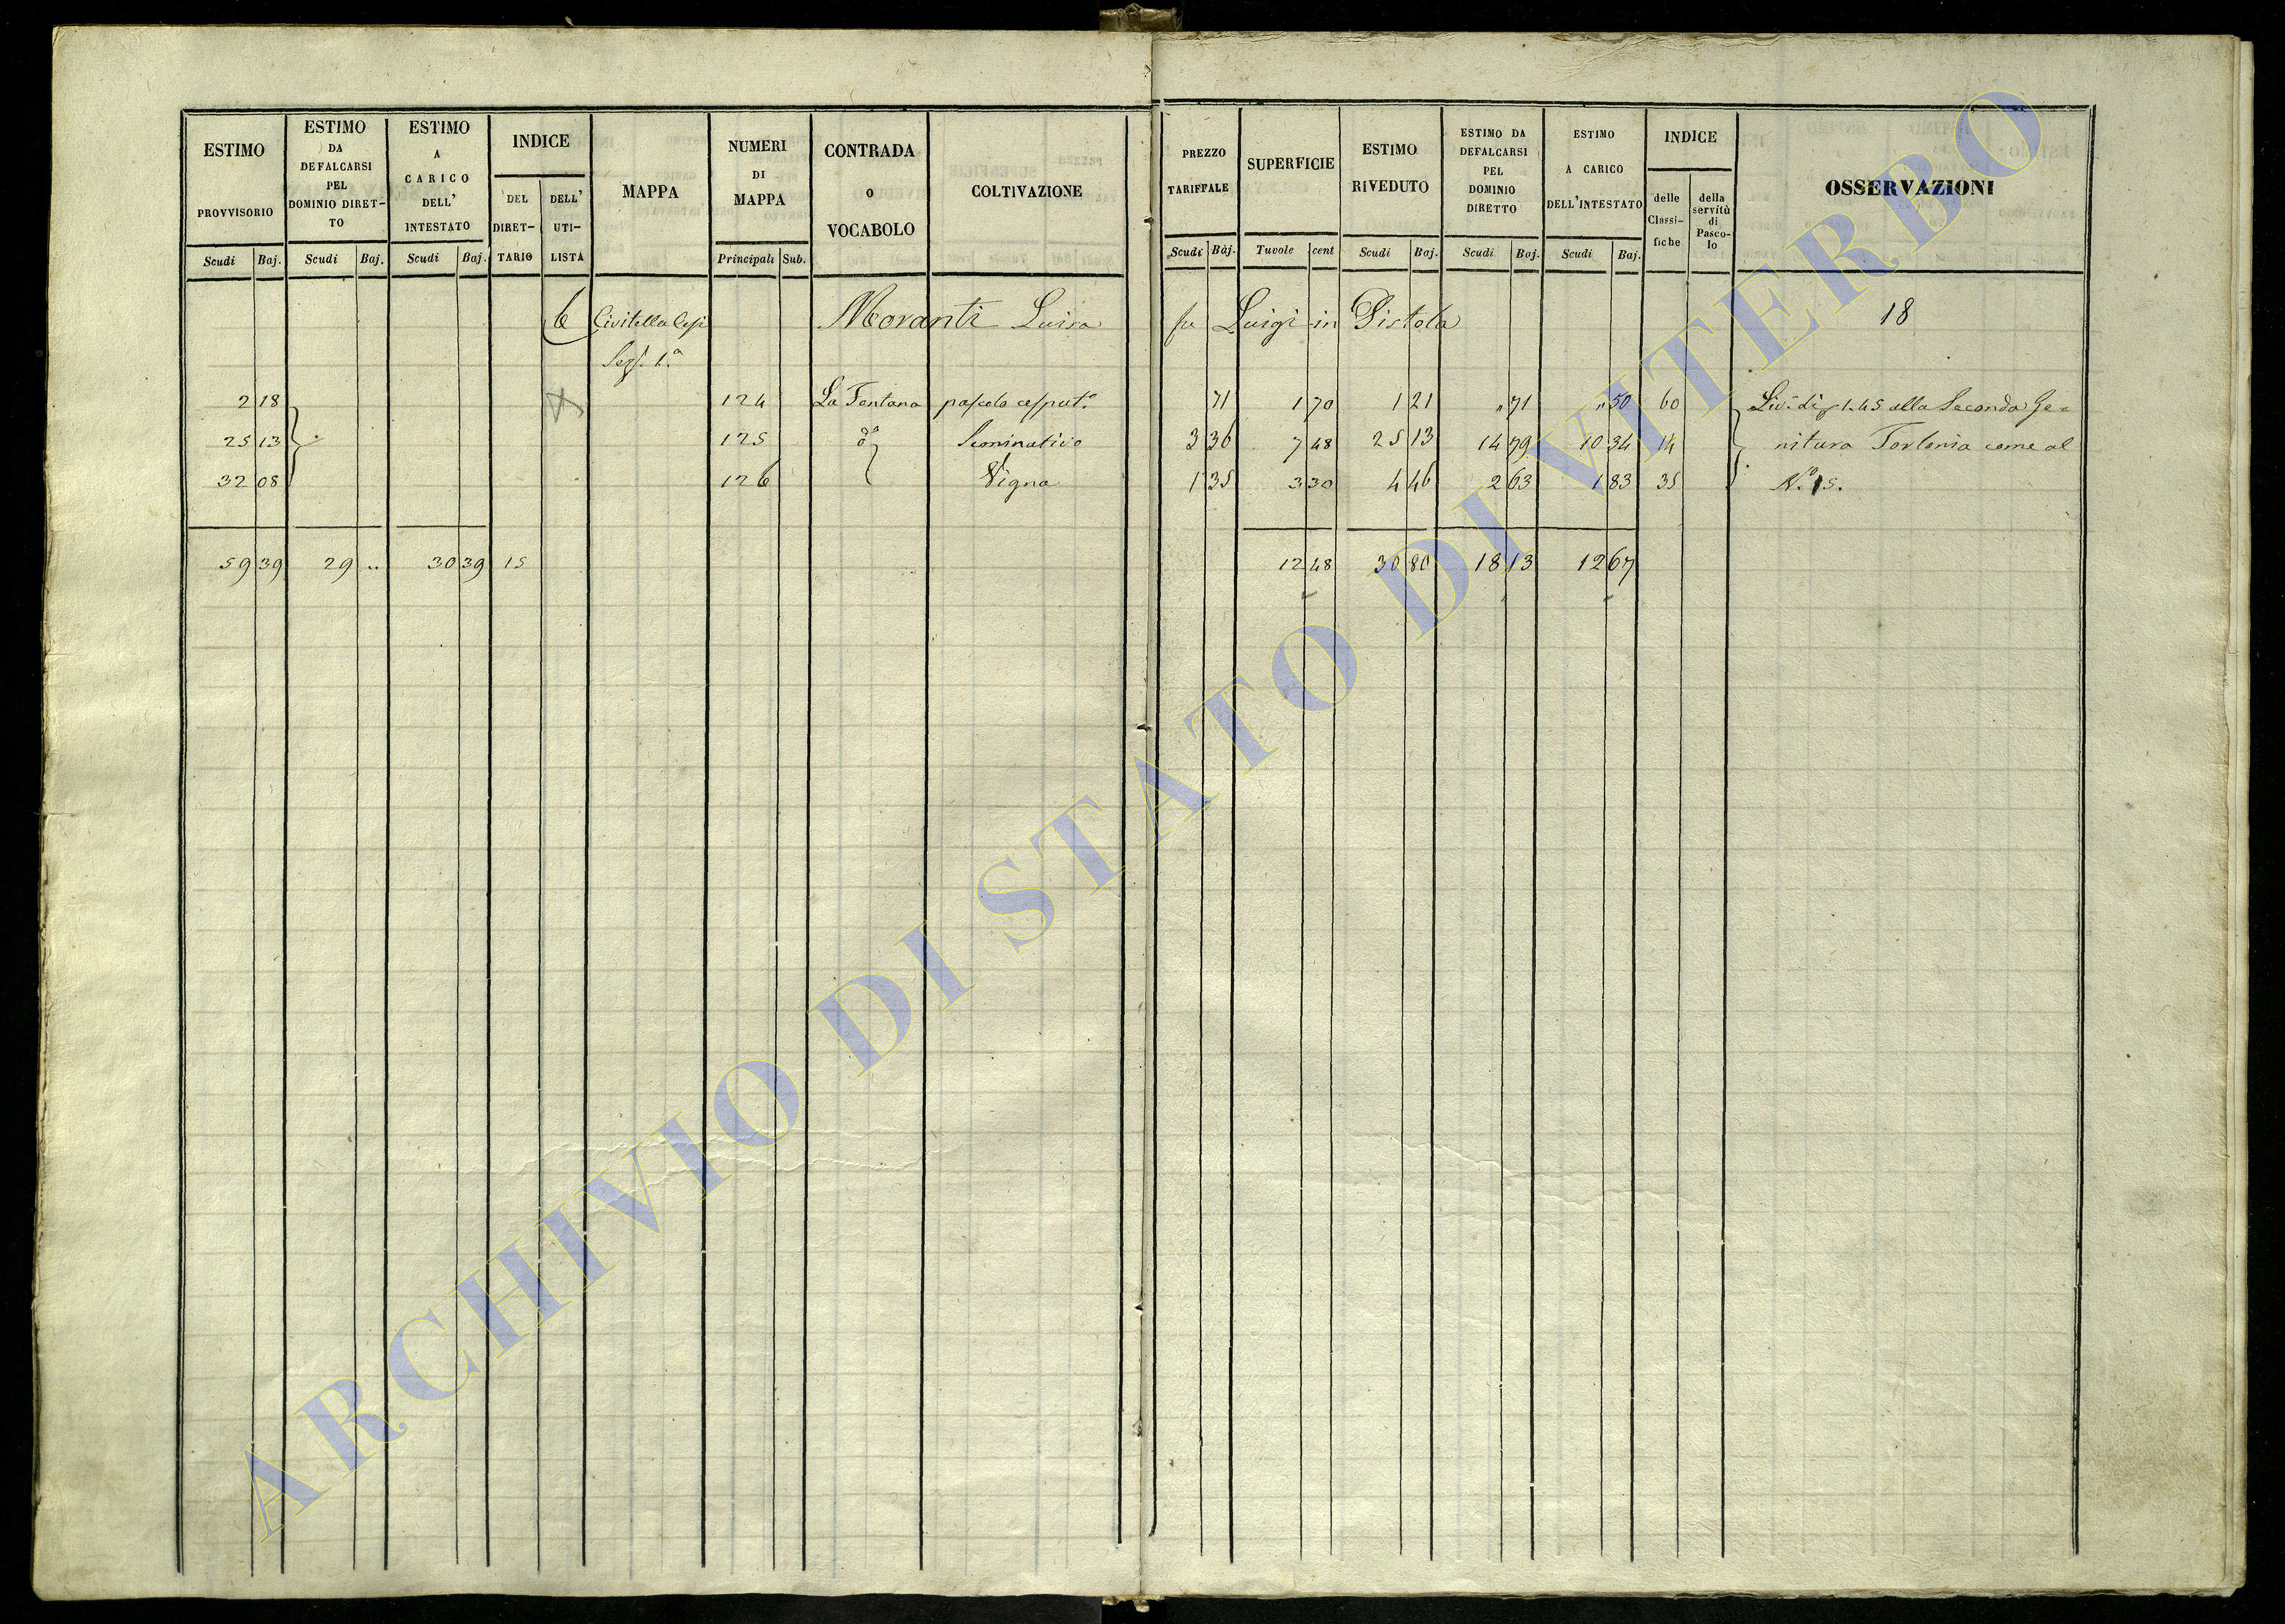 ESTIMO PROVVISORIO Scudi Baj.
ESTIMO DA DEFALCARSI PEL DOMINIO DIRET-TO Scudi Baj.
ESTIMO A CARICO DELL' INTESTATO Scudi Baj.
INDICE DEL DIRET-TARIO DELL' UTI-LISTA
MAPPA
NUMERI DI MAPPA Principali Sub.
CONTRADA O VOCABOLO
COLTIVAZIONE
PREZZO TARIFFALE Scudi Baj.
SUPERFICIE Tavole cent
ESTIMO RIVEDUTO Scudi Baj.
ESTIMO DA DEFALCARSI PEL DOMINIO DIRETTO Scudi Baj.
ESTIMO A CARICO DELL'INTESTATO Scudi Baj.
INDICE delle Classi-fiche della servitù di Pasco-lo
OSSERVAZIONI
6 Civitella Cesi Moranti Luisa fu Luigi in Pistola 18
Sez. 1.a
2 18 124 La Fontana pascolo cesput.o 71 1 70 1 21 " 71 " 50 60 Liv.o di 1.45 alla Seconda Ge=
25 13 125 d.o Seminativo 3 36 7 48 25 13 14 79 10 34 14 nitura Torlonia come al
32 08 126 Vigna 1 35 3 30 4 46 2 63 1 83 35 N.o 15.
59 39 29 .. 30 39 15 12 48 30 80 18 13 12 67
ARCHIVIO DI STATO DI VITERBO